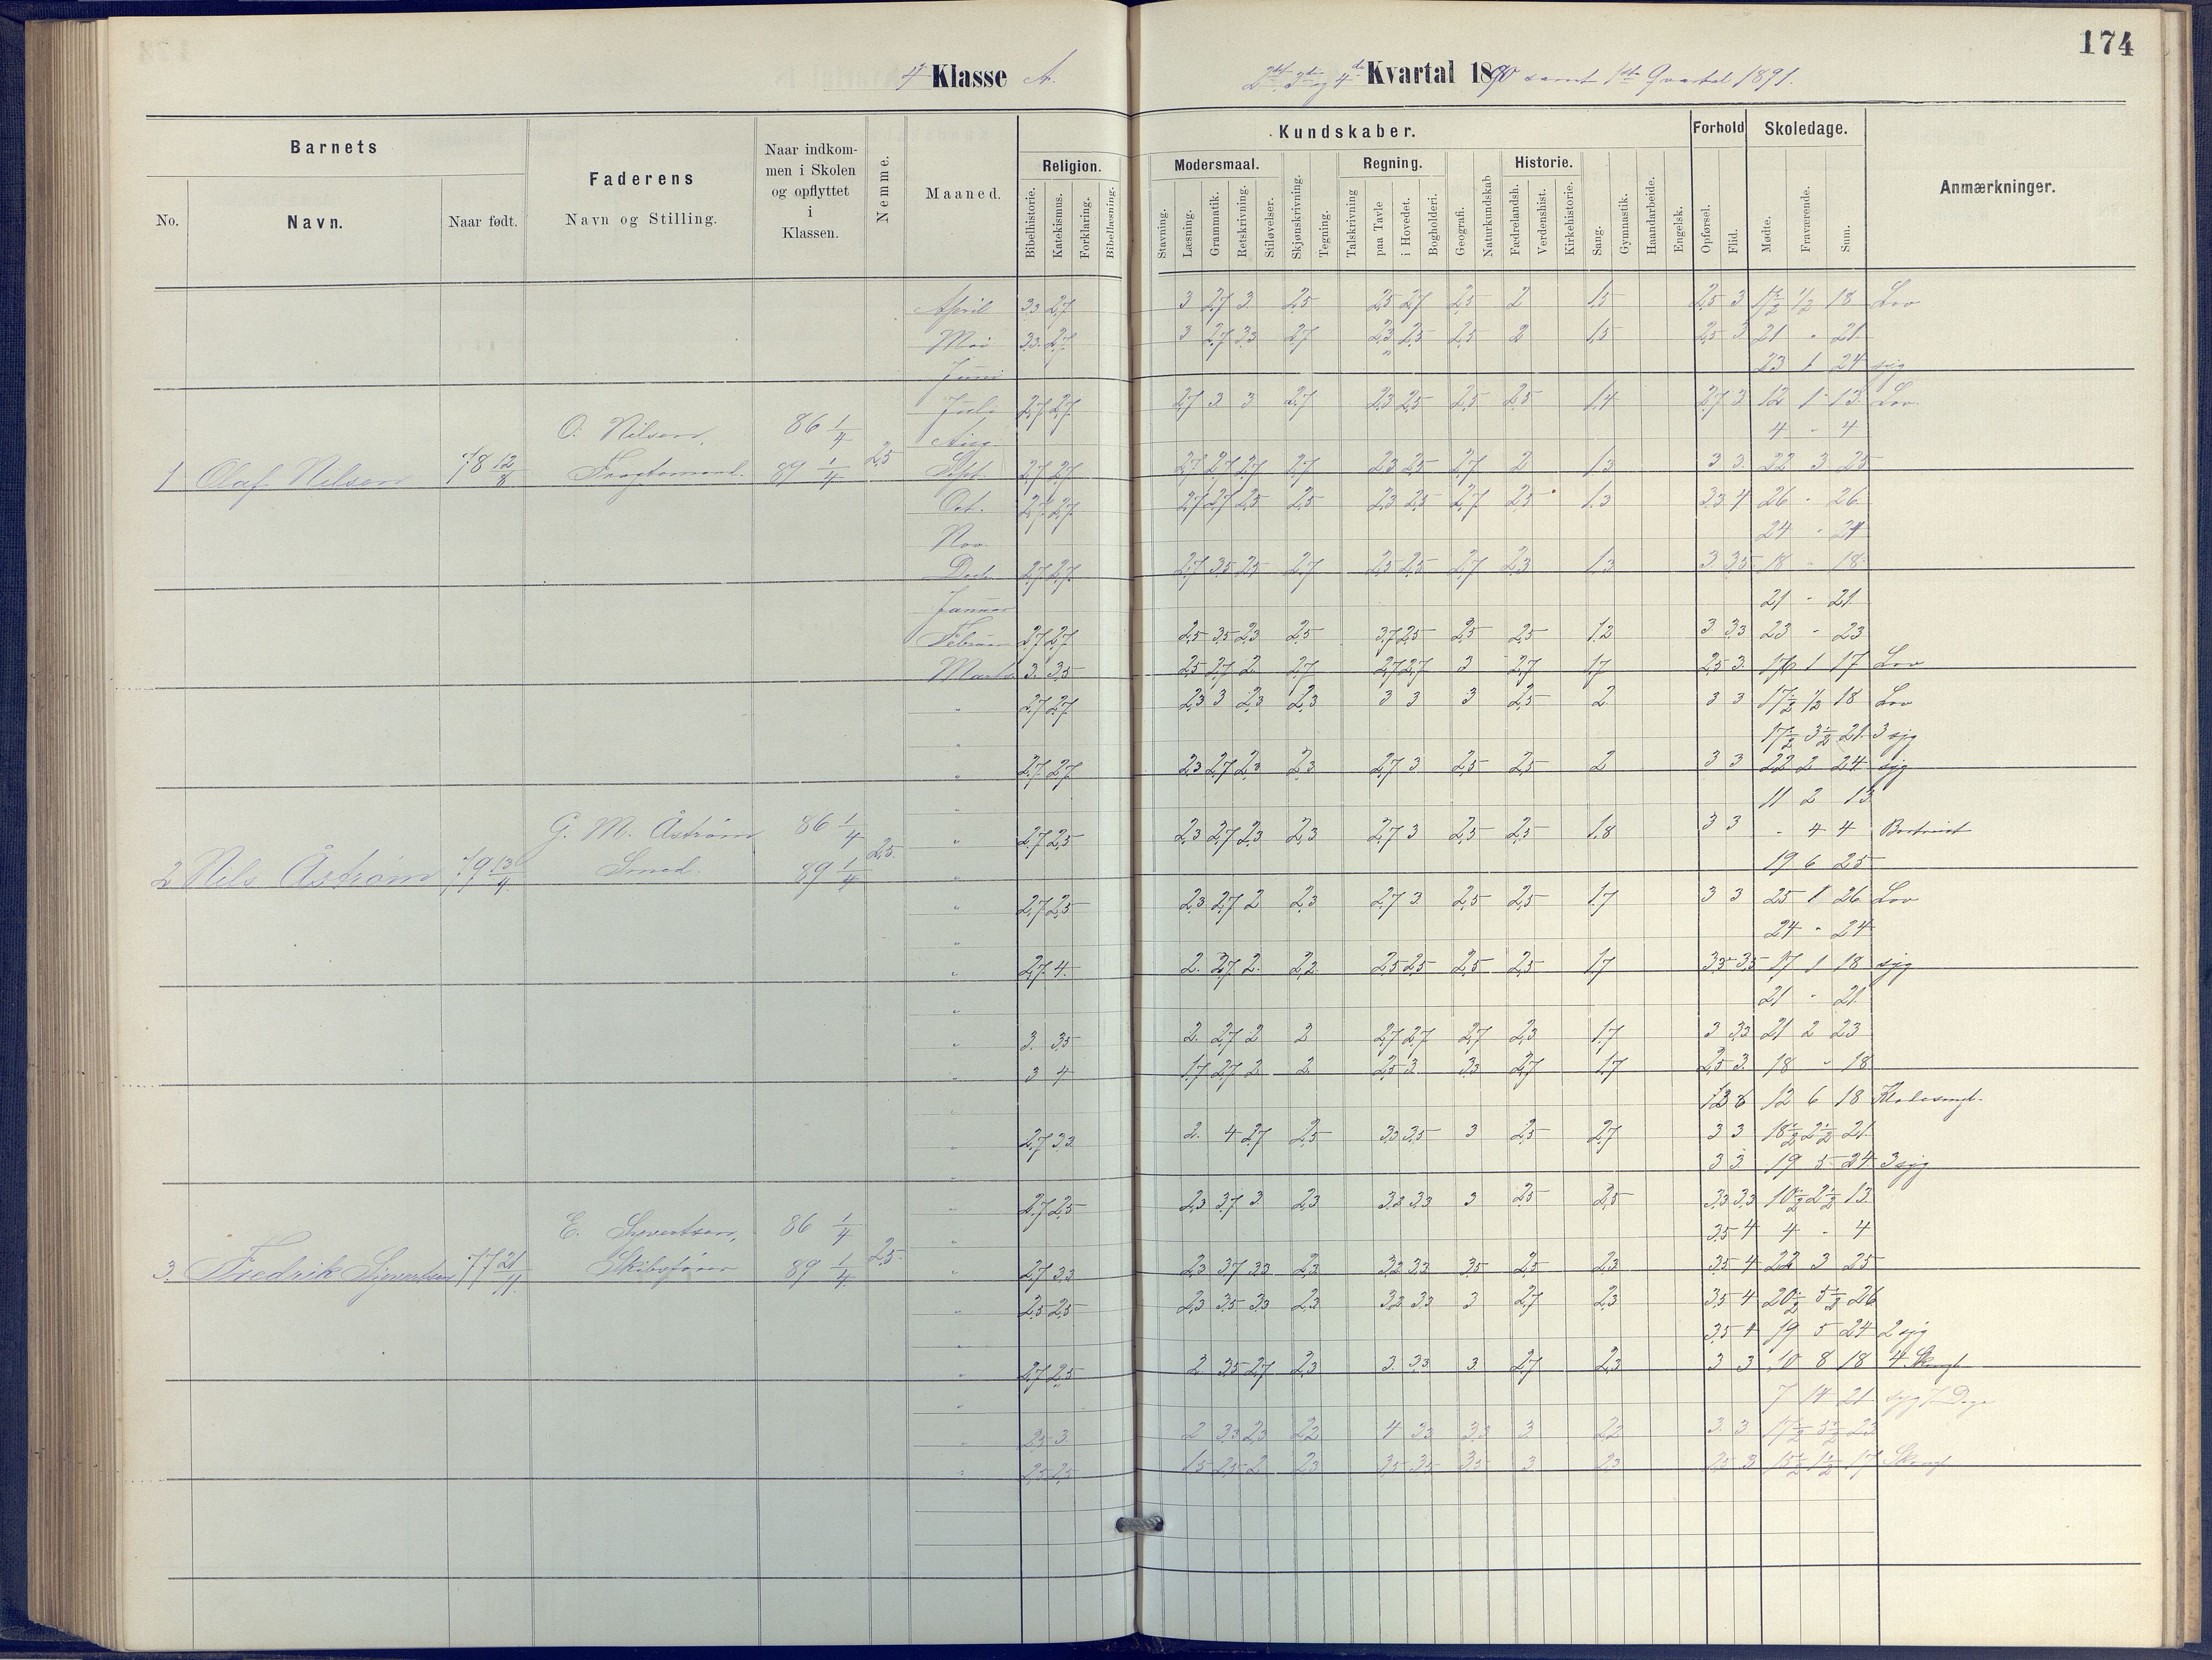 174
4 Klasse A.
2det 3die og 4de Kvartal 1890 samt 1ste Qvartal 1891.
Barnets
No.
Navn.
Naar født.
Faderens
Navn og Stilling.
Naar indkommen i Skolen og opflyttet i Klassen.
Nemme.
Maaned.
Religion.
Bibelhistorie.
Katekismus.
Forklaring.
Bibellæsning.
Kundskaber.
Modersmaal.
Stavning.
Læsning.
Grammatik.
Retskrivning.
Stiløvelser.
Skjønskrivning.
Tegning.
Regning.
Talskrivning
paa Tavle
i Hovedet.
Bogholderi.
Geografi.
Naturkundskab
Historie.
Fædrelandsh.
Verdenshist.
Kirkehistorie.
Sang.
Gymnastik.
Haandarbeide.
Engelsk.
Forhold
Opførsel.
Flid.
Skoledage.
Mødte.
Fraværende.
Sum.
Anmærkninger.
April 3.3 2.7 3 2.7 3 2.5 2.5 2.7 2.5 2 1.5 2.5 3 17½ ½ 18 Lov
Mai 3.3 2.7 3 2.7 3.3 2.7 2.3 2.5 2.5 2 1.5 2.5 3 21 - 21
Juni 23 1 24 syg
Juli 2.7 2.7 2.7 3 3 2.7 2.3 2.5 2.5 2.5 1.4 2.7 3 12 1 13 Lov
Aug. 4 - 4
Sept. 2.7 2.7 2.7 2.7 2.7 2.7 2.3 2.5 2.7 2 1.3 3 3 22 3 25
Oct. 2.7 2.7 2.7 2.7 2.5 2.5 2.3 2.5 2.7 2.5 1.3 3.3 4 26 - 26
Nov. 24 - 24
Decb. 2.7 2.7 2.7 3.5 2.5 2.7 2.5 2.5 2.7 2.3 1.3 3 3.5 18 - 18
Januar 21 - 21
Februar 2.7 2.7 2.5 3.5 2.3 2.5 3.7 2.5 2.5 2.5 1.2 3 3.3 23 - 23
Marts 3 3.5 2.5 2.7 2 2.7 2.7 2.7 3 2.7 1.7 2.5 3 16 1 17 Lov
1 Olaf Nilsen 78 12/8
O. Nilsen,
Fragtemand.
86 1/4
89 1/4
2.5
" 2.7 2.7 2.3 3 2.3 2.3 3 3 3 2.5 2 3 3 17½ ½ 18 Lov
" 17½ 3½ 21 3 syg
" 2.7 2.7 2.3 2.7 2.3 2.3 2.7 3 2.5 2.5 2 3 3 22 2 24 syg
" 11 2 13
" 2.7 2.5 2.3 2.7 2.3 2.3 2.7 3 2.5 2.5 1.8 3 3 - 4 4 Bortreist
" 19 6 25
" 2.7 2.5 2.3 2.7 2 2.3 2.7 3 2.5 2.5 1.7 3 3 25 1 26 Lov
" 24 - 24
" 2.7 4 2 2.7 2 2.2 2.5 2.5 2.5 2.5 1.7 3.3 3.5 17 1 18 syg
" 21 - 21
" 3 3.5 2 2.7 2 2 2.7 2.7 2.7 2.3 1.7 3 3.3 21 2 23
" 3 4 1.7 2.7 2 2 2.5 3 3.3 2.7 1.7 2.5 3 18 - 18
2 Nels Åström 79 13/4
G. M. Åström
Smed.
86 1/4
89 1/4
2.5
" 12 6 18
" 2.7 3.3 2 4 2.7 2.5 3.3 3.5 3 2.5 2.7 3 3 18½ 2½ 21
" 3 3 19 5 24 3 syg
" 2.7 2.5 2.3 3.7 3 2.3 3.3 3.3 3 2.5 2.5 3.3 3.3 10½ 2½ 13
" 3.5 4 4 - 4
" 2.7 3.3 2.3 3.7 3.3 2.3 3.2 3.3 3.5 2.5 2.3 3.5 4 22 3 25
" 2.5 2.5 2.3 3.5 3.3 2.3 3.2 3.3 3 2.7 2.3 3.5 4 20½ 5½ 26
3.5 4 19 5 24 2 syg
" 2.7 2.5 2 3.5 2.7 2.3 3 3.3 3 2.7 2.3 3 3 10 8 18
" 7 14 21 syg 7 Dage
" 2.5 3 2 3.3 2.3 2.2 4 3.3 3.3 3 2.2 3 3 17½ 5½ 23
" 2.5 2.5 1.5 2.5 2 2.3 3.5 3.5 3.5 3 2.3 2.5 3 15½ 1½ 17
3. Fredrik Sivertsen 77 21/11
E. Syvertsen,
Skibsfører
86 1/4
89 1/4
2.5